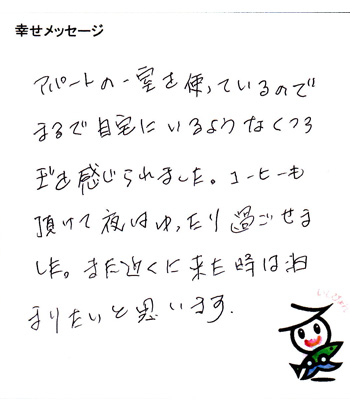 幸せメッセージ
アパートの一室を使っているので
まるで自宅にいるようなくつろ
ぎを感じられました。コーヒーも
頂けて夜はゆったり過ごせま
した。また近くに来た時は泊
まりたいと思います.